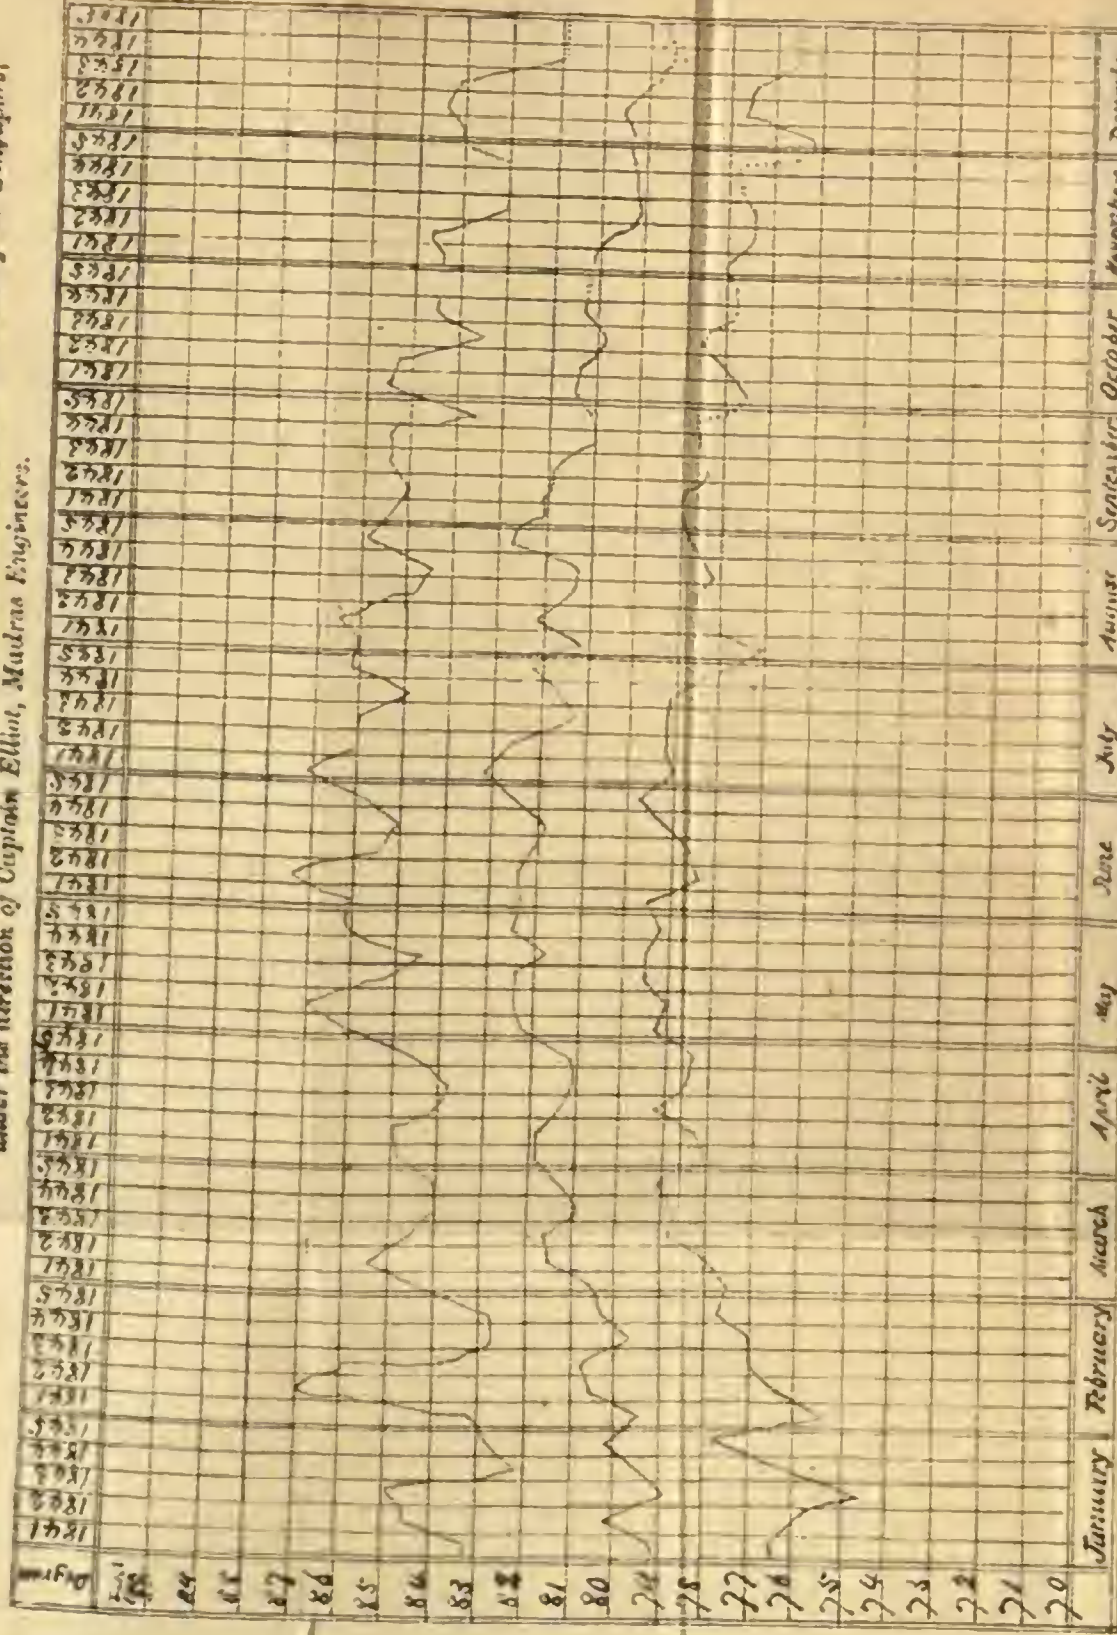 under the direction of Captain Elliot, Madras Engineers.
Degrees
1841
1842
1843
1844
1845
1841
1842
1843
1844
1845
1841
1842
1843
1844
1845
1841
1842
1843
1844
1845
1841
1842
1843
1844
1845
1841
1842
1843
1844
1845
1841
1842
1843
1844
1845
1841
1842
1843
1844
1845
1841
1842
1843
1844
1845
1841
1842
1843
1844
1845
1841
1842
1843
1844
1845
1841
1842
1843
1844
1845
89
88
87
86
85
84
83
82
81
80
79
78
77
76
75
74
73
72
71
70
January
February
March
April
May
June
July
August
September
October